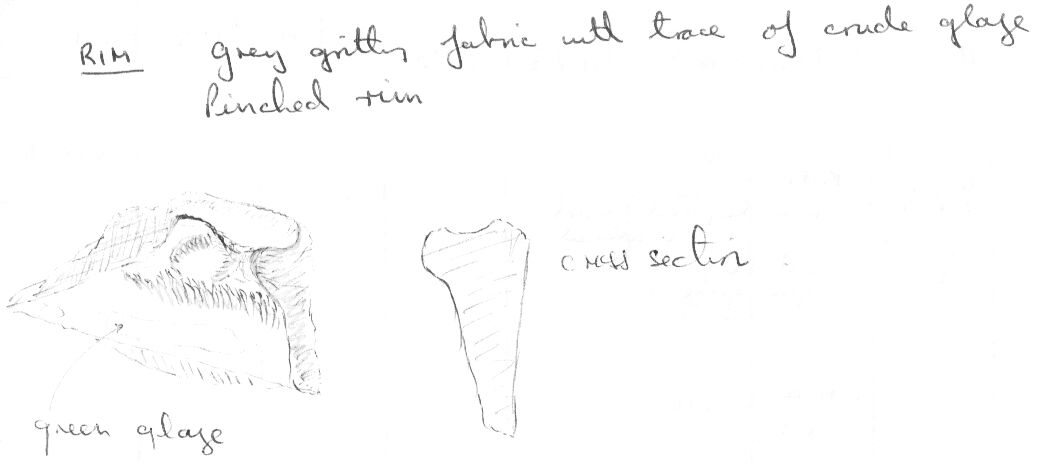 RIM Grey gritty fabric with trace of crude glaze
Pinched rim
cross section
green glaze